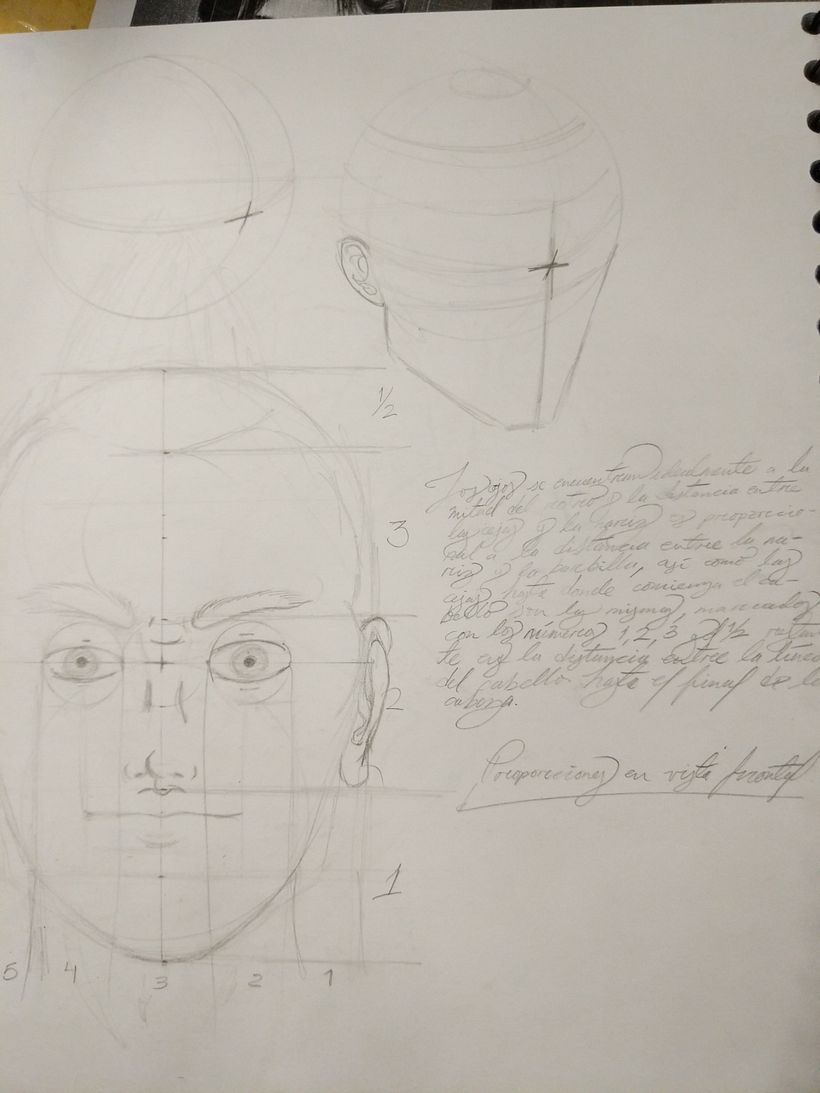 1/2
3
Los ojos se encuentran idealmente a la
mitad del rostro y la distancia entre
las cejas y la nariz es proporcio-
nal a la distancia entre la na-
riz y la barbilla, así como las
cejas hasta donde comienza el ca-
bello son las mismas, marcados
con los números 1, 2, 3 y el 1/2 restan-
te es la distancia entre la línea
del cabello hasta el final de la
cabeza.
2
Proporciones en vista frontal
1
5 4 3 2 1